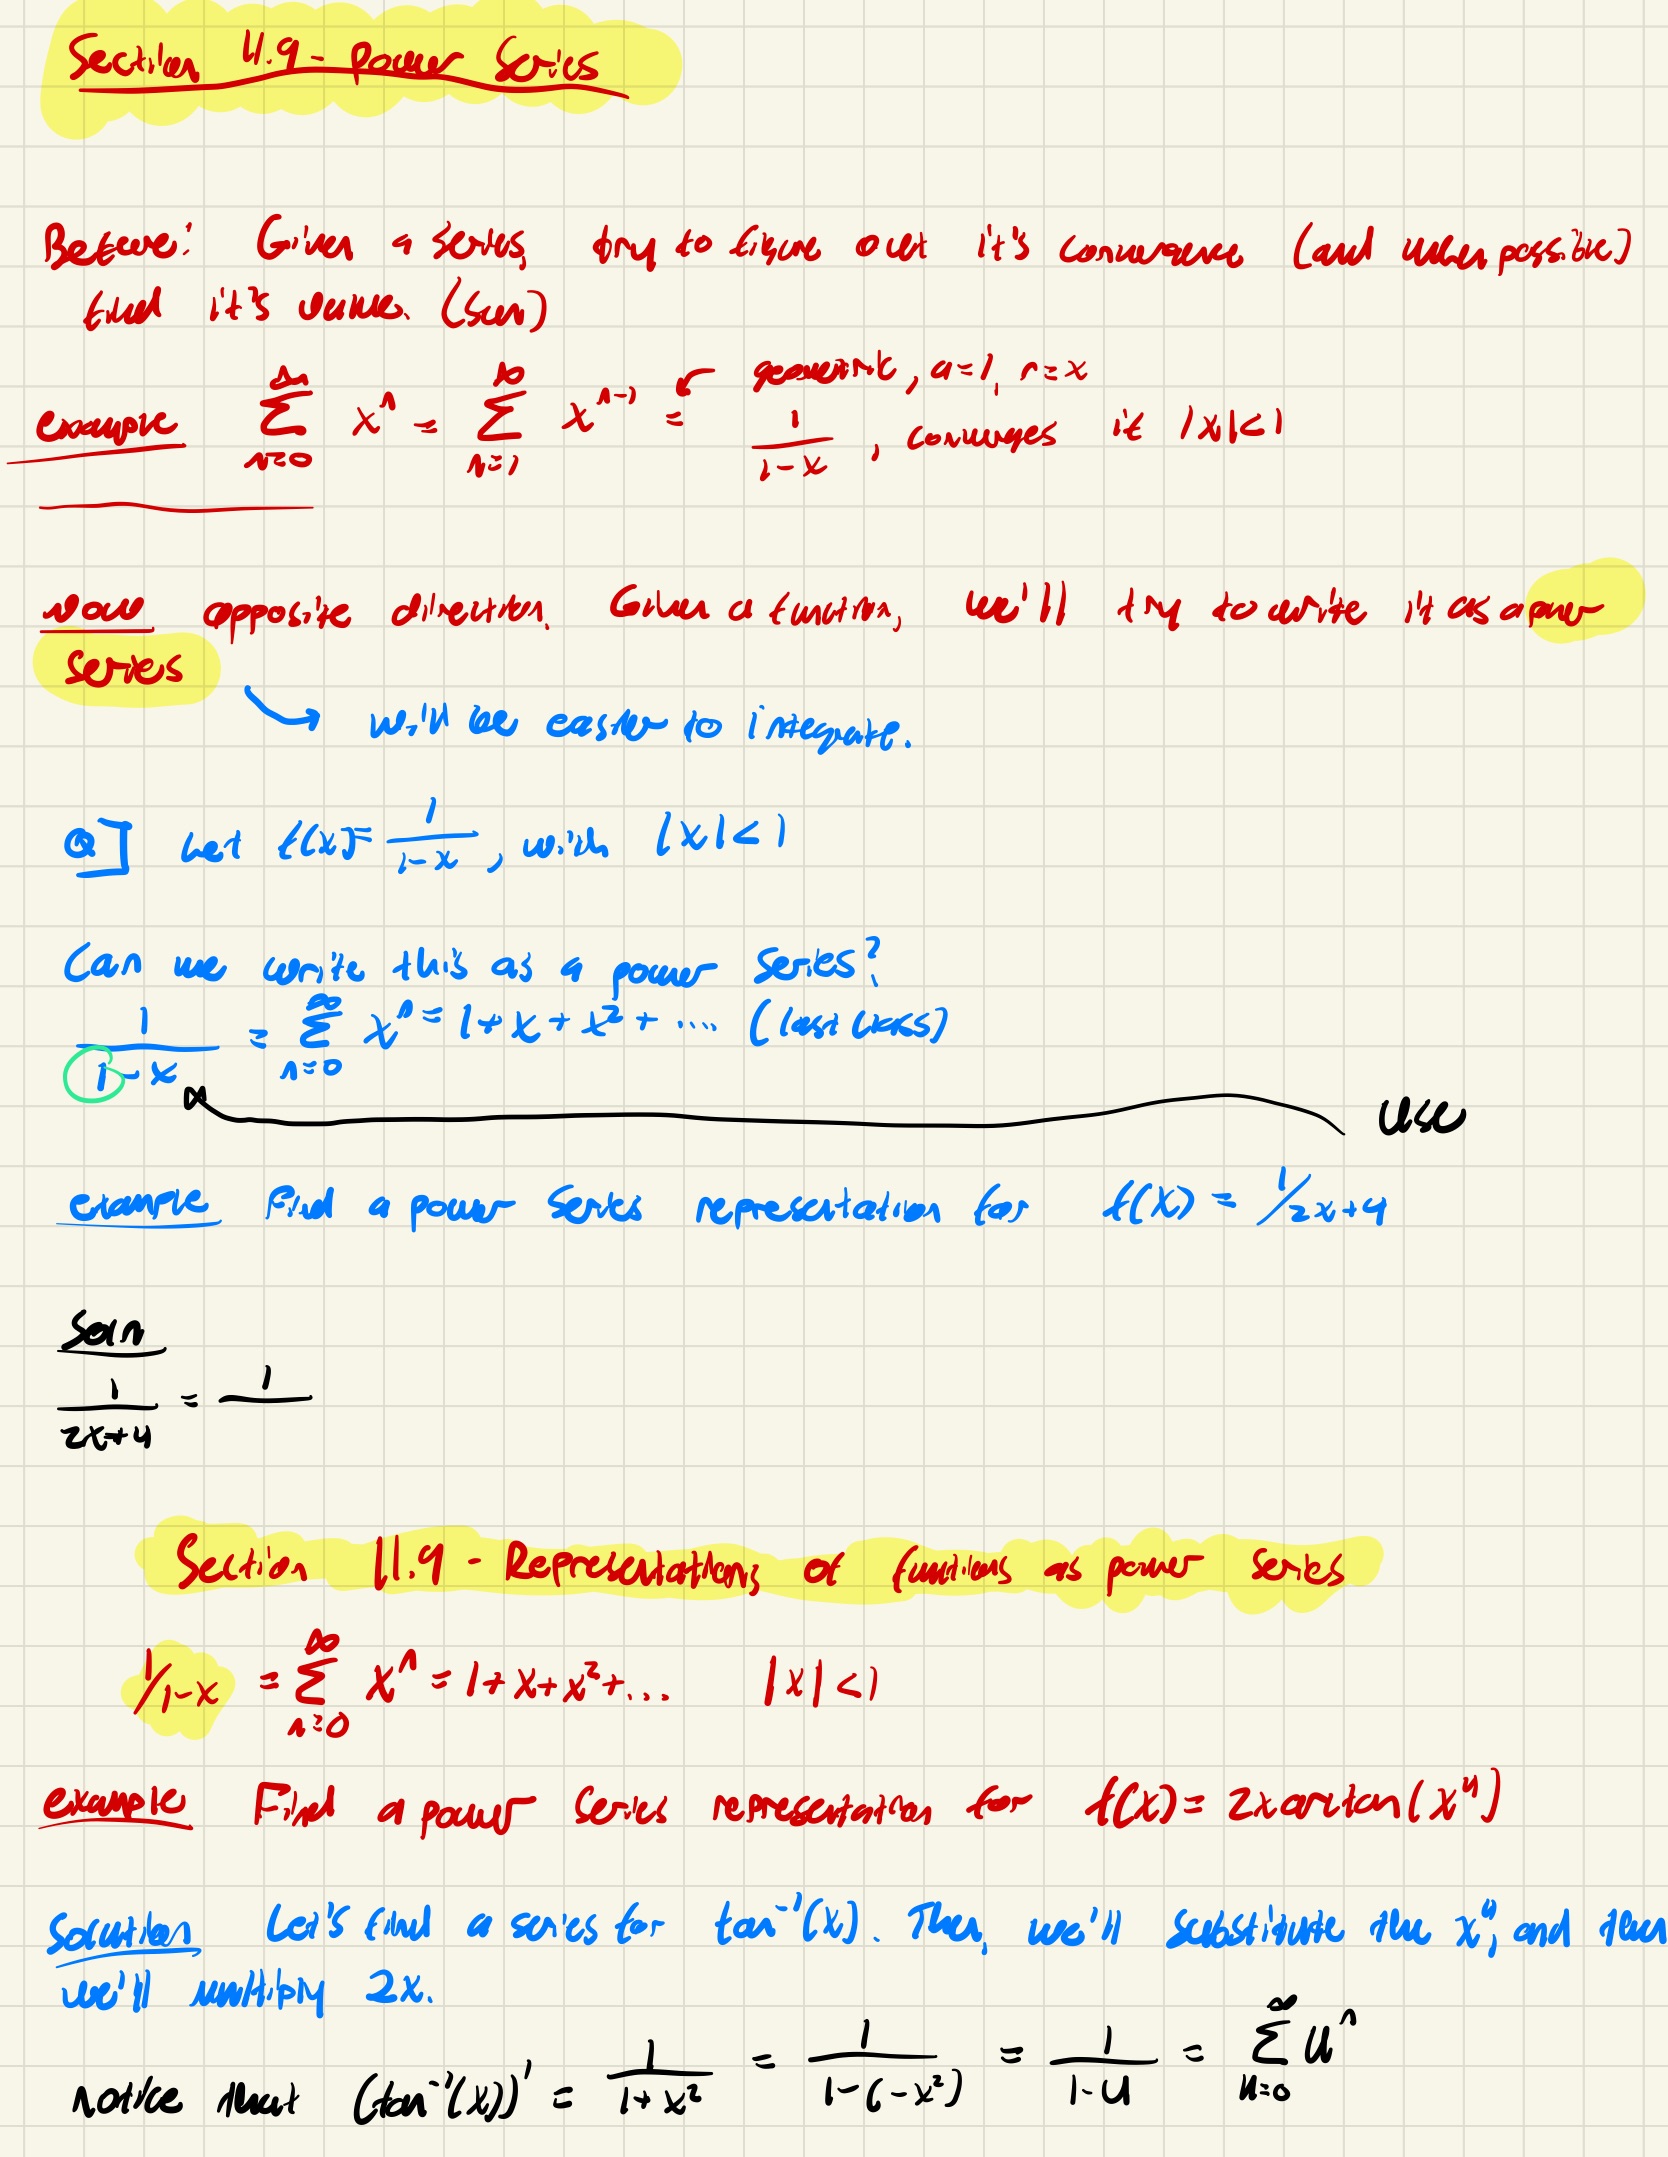 Section 11.9 - Power Series
Before: Given a series, try to figure out it's convergence (and when possible)
find it's value. (sum)
example ∑_{n=0}^{∞} x^n = ∑_{n=1}^{∞} x^{n-1} = 1/(1-x), converges if |x|<1
geometric, a=1, r=x
now opposite direction. Given a function, we'll try to write it as a power
series
will be easier to integrate.
Q] Let f(x) = 1/(1-x), with |x|<1
Can we write this as a power series?
1/(1-x) = ∑_{n=0}^{∞} x^n = 1+x+x^2+.... (last class)
use
example Find a power series representation for f(x) = 1/2x+4
Soln
1/(2x+4) = 1/
Section 11.9 - Representations of functions as power series
1/1-x = ∑_{n=0}^{∞} x^n = 1+x+x^2+... |x|<1
example Find a power series representation for f(x) = 2x arctan(x^4)
Solution Let's find a series for tan^{-1}(x). Then, we'll substitute the x^4, and then
we'll multiply 2x.
notice that (tan^{-1}(x))' = 1/(1+x^2) = 1/(1-(-x^2)) = 1/(1-u) = ∑_{n=0}^{∞} u^n